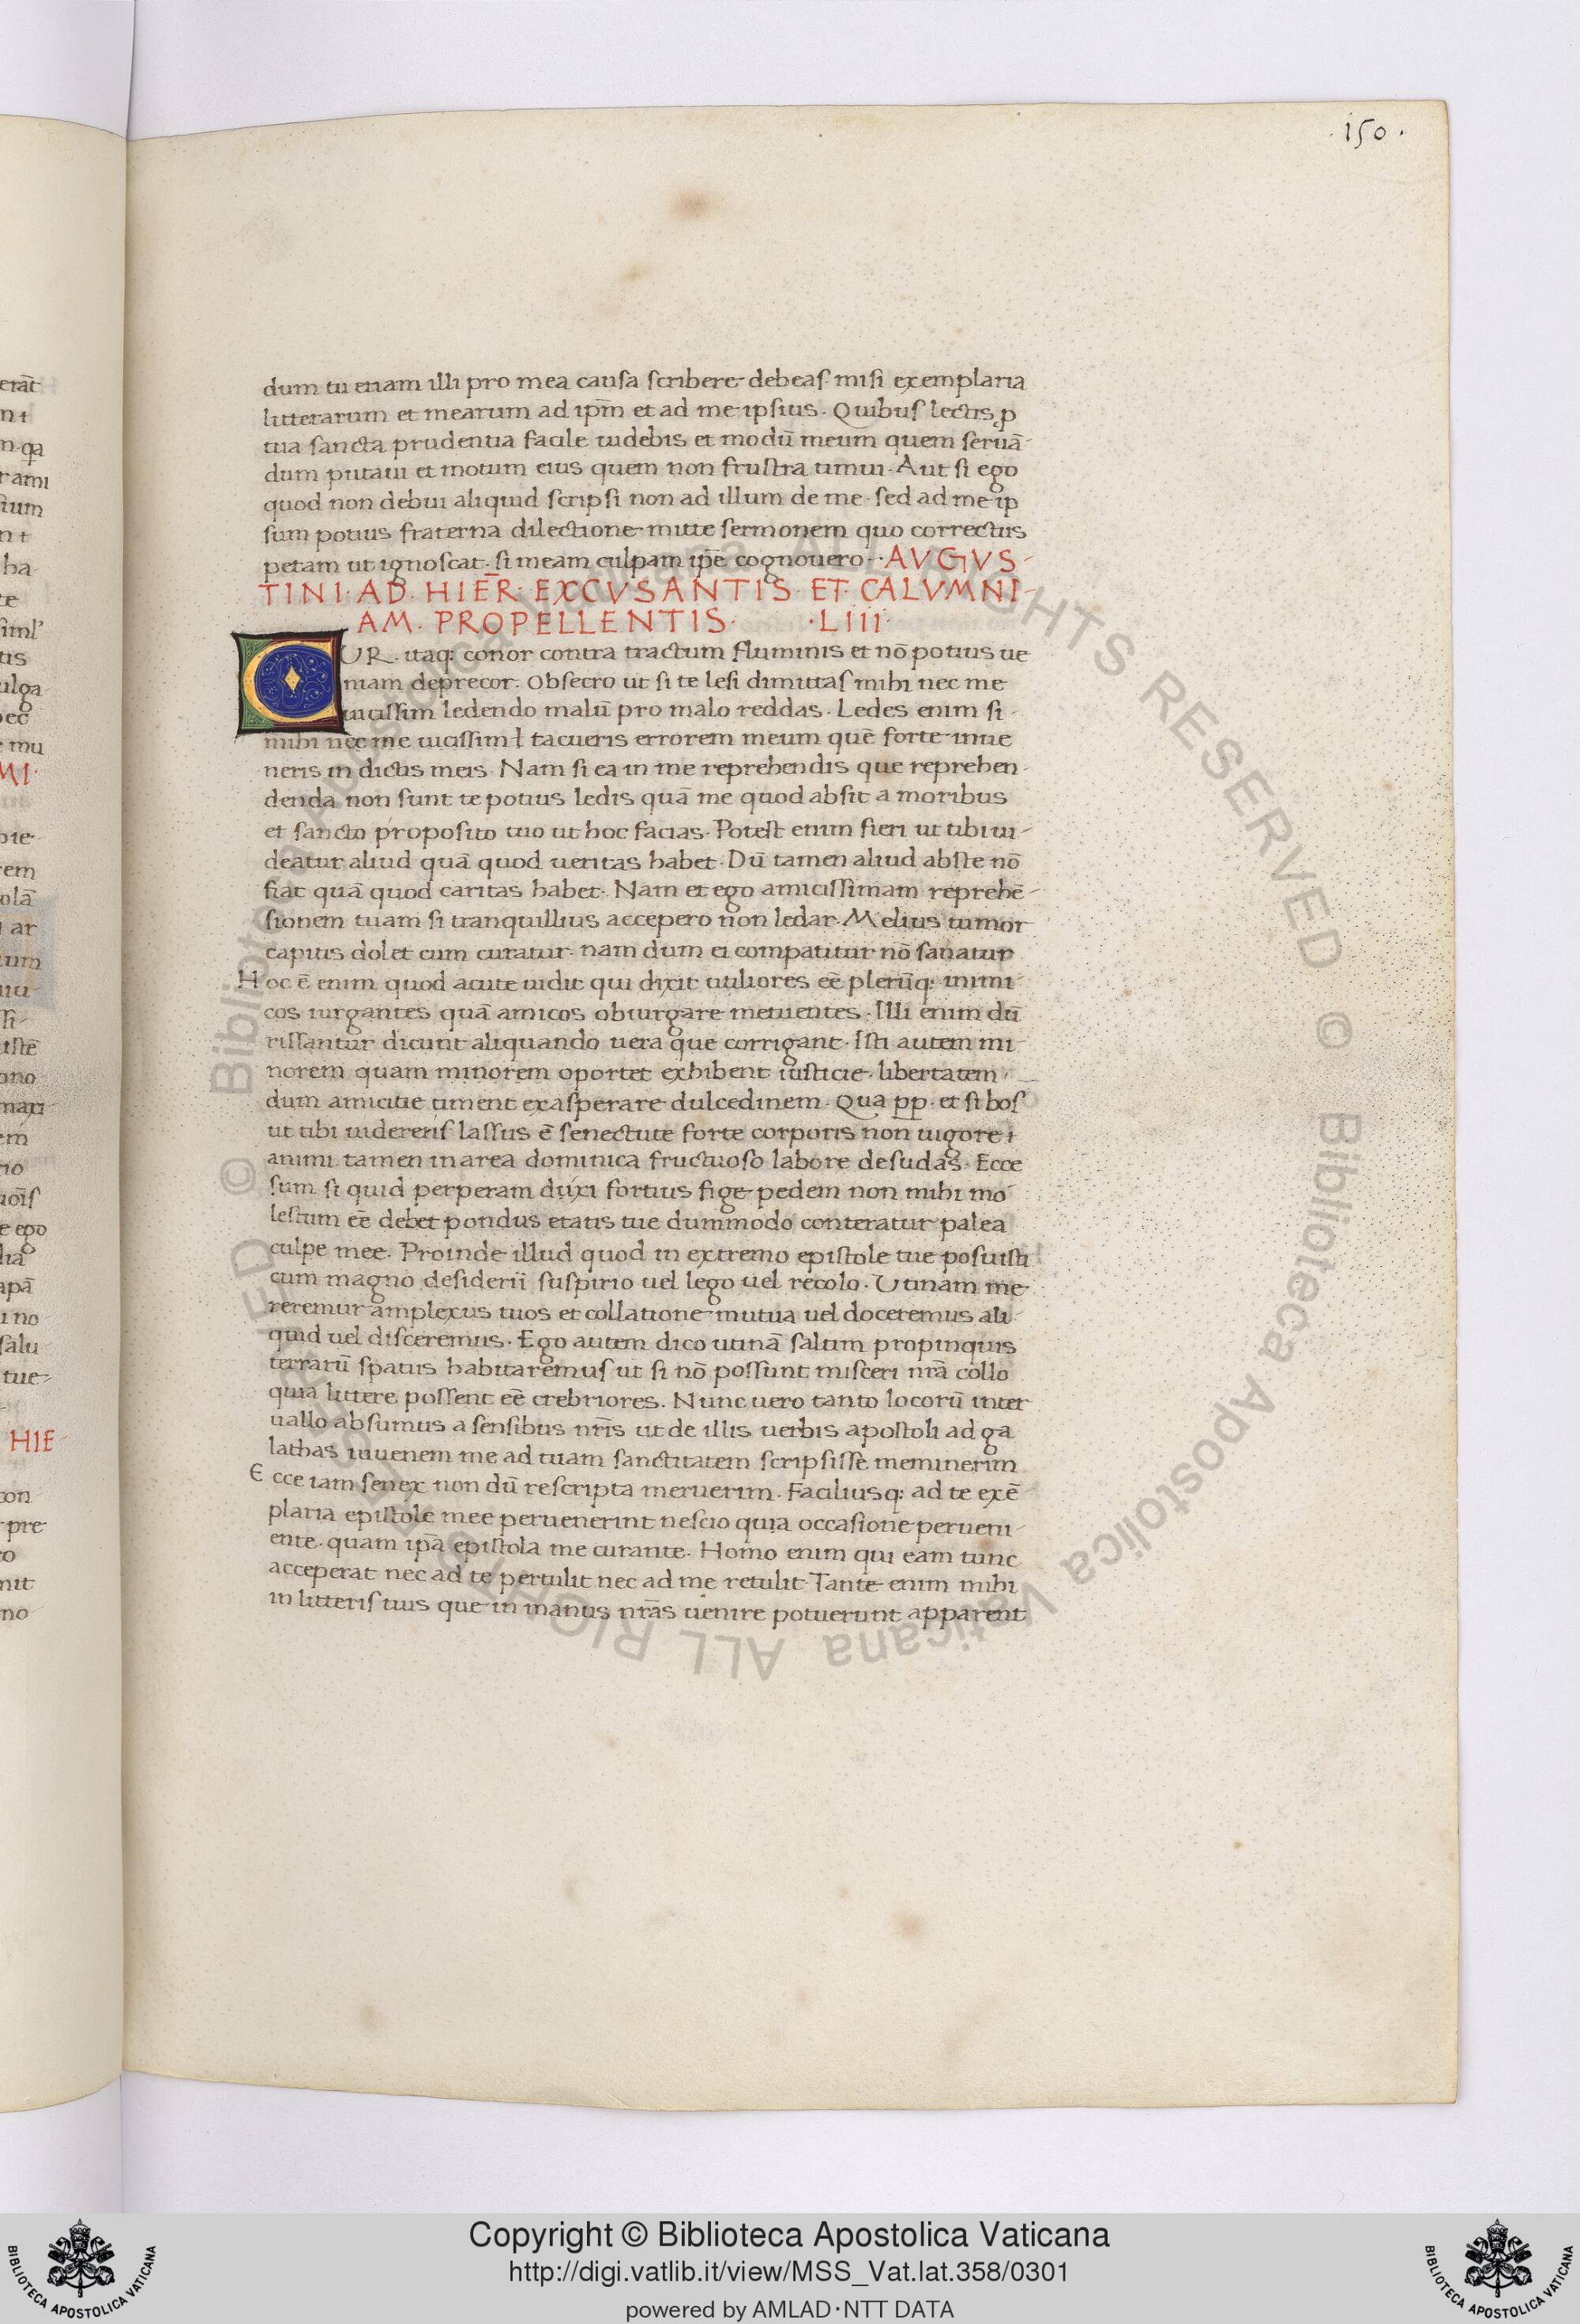 .150.
dum tu etiam illi pro mea causa scribere debeas misi exemplaria
litterarum et mearum ad ipm̄ et ad me ipsius. Quibus lectis ꝓ
tua sancta prudentia facile uidebis et modū meum quem seruā-
dum putaui et motum eius quem non frustra timui. Aut si ego
quod non debui aliquid scripsi non ad illum de me. sed ad me ip
sum potius fraterna dilectione mitte sermonem quo correctus
petam ut ignoscat. si meam culpam ip̄e cognouero. AVGVS-
TINI. AD. HIER̄. EXCVSANTIS. ET. CALVMNI-
AM. PROPELLENTIS. .LIIII.
CUR. itaq; conor contra tractum fluminis et nō potius ue
niam deprecor. Obsecro ut si te lesi dimittas mihi nec me
uicissim ledendo malū pro malo reddas. Ledes enim si
mihi nec me uicissim ł tacueris errorem meum quē forte inue
neris in dictis meis. Nam si ea in me reprehendis que reprehen-
denda non sunt te potius ledis quā me quod absit a moribus
et sancto proposito tuo ut hoc facias. Potest enim fieri ut tibi ui-
deatur aliud quā quod ueritas habet. Dū tamen aliud abste nō
fiat quā quod caritas habet. Nam et ego amicissimam reprehē-
sionem tuam si tranquillius accepero non ledar. Melius tumor
capitis dolet cum curatur. nam dum ei compatitur nō sanatur
Hoc ē enim quod acute uidit qui dixit utiliores eē plerūq; inimi-
cos iurgantes quā amicos obiurgare metuentes. Illi enim dū
rissantur dicunt aliquando uera que corrigant. Isti autem mi-
norem quam minorem oportet exhibent iusticie libertatem
dum amicitie timent exasperare dulcedinem. Qua pp. et si bos
ut tibi uidereris lassus ē senectute forte corporis non uigore
animi tamen in area dominica fructuoso labore desudas. Ecce
sum si quid perperam dixi fortius fige pedem non mihi mo
lestum eē debet pondus etatis tue dummodo conteratur palea
culpe mee. Proinde illud quod in extremo epistole tue posuisti
cum magno desiderii suspirio uel lego uel recolo. Utinam me
reremur amplexus tuos et collatione mutua uel doceremus ali
quid uel disceremus. Ego autem dico utinā saltim propinquis
terrarū spatiis habitaremus ut si nō possunt misceri nrā collo
quia littere possent eē crebriores. Nunc uero tanto locorū inter
uallo absumus a sensibus nr̄is ut de illis uerbis apostoli ad ga
lathas iuuenem me ad tuam sanctitatem scripsisse meminerim
Ecce iam senex non dū rescripta meruerim. Faciliusq; ad te exē-
plaria epistole mee peruenerint nescio quia occasione perueni-
ente. quam ip̄a epistola me curante. Homo enim qui eam tunc
acceperat nec ad te pertulit nec ad me retulit. Tante enim mihi
in litteris tuis que in manus nrās uenire potuerunt apparent
Copyright © Biblioteca Apostolica Vaticana
http://digi.vatlib.it/view/MSS_Vat.lat.358/0301
powered by AMLAD·NTT DATA